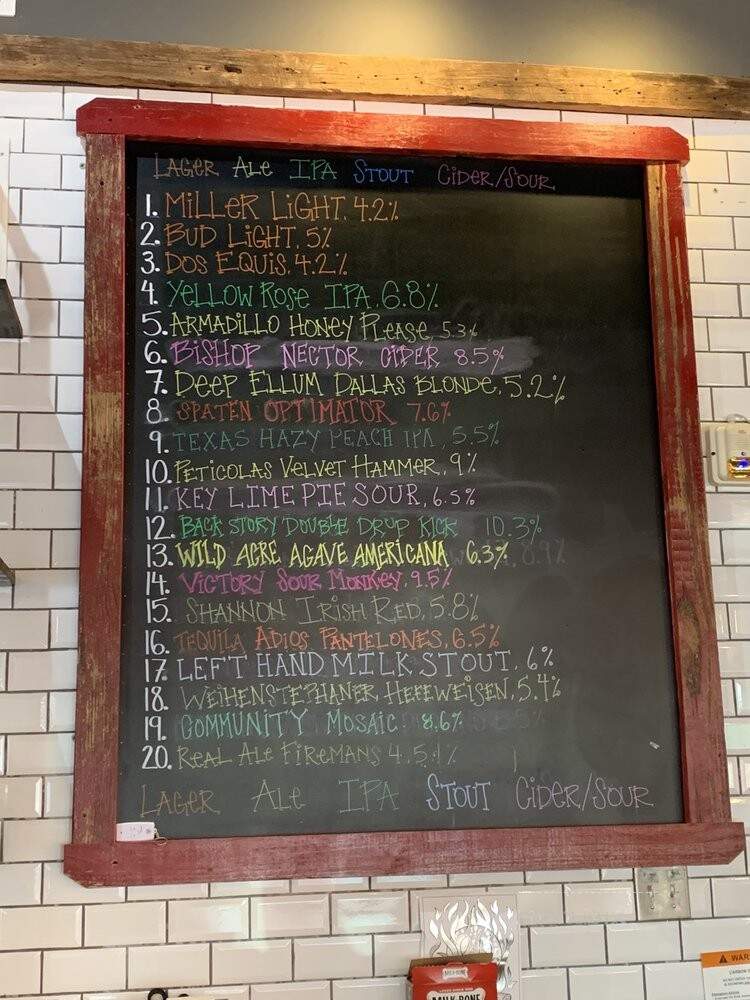 Lager Ale IPA Stout Cider/Sour
1. Miller Light, 4.2%
2. Bud Light, 5%
3. Dos Equis, 4.2%
4. Yellow Rose IPA, 6.8%
5. Armadillo Honey Please, 5.3%
6. Bishop Nector Cider 8.5%
7. Deep Ellum Dallas Blonde, 5.2%
8. Spaten Optimator 7.6%
9. Texas Hazy Peach IPA, 5.5%
10. Peticolas Velvet Hammer, 9%
11. Key Lime Pie Sour, 6.5%
12. Back Story Double Drop Kick 10.3%
13. Wild Acre Agave Americana 6.3%
14. Victory Sour Monkey, 9.5%
15. Shannon Irish Red, 5.8%
16. Tequila Adios Pantelones, 6.5%
17. Left Hand Milk Stout, 6%
18. Weihenstephaner Hefeweisen, 5.4%
19. Community Mosaic 8.6%
20. Real Ale Firemans 4, 5.1%
Lager Ale IPA Stout Cider/Sour
Milk-Bone